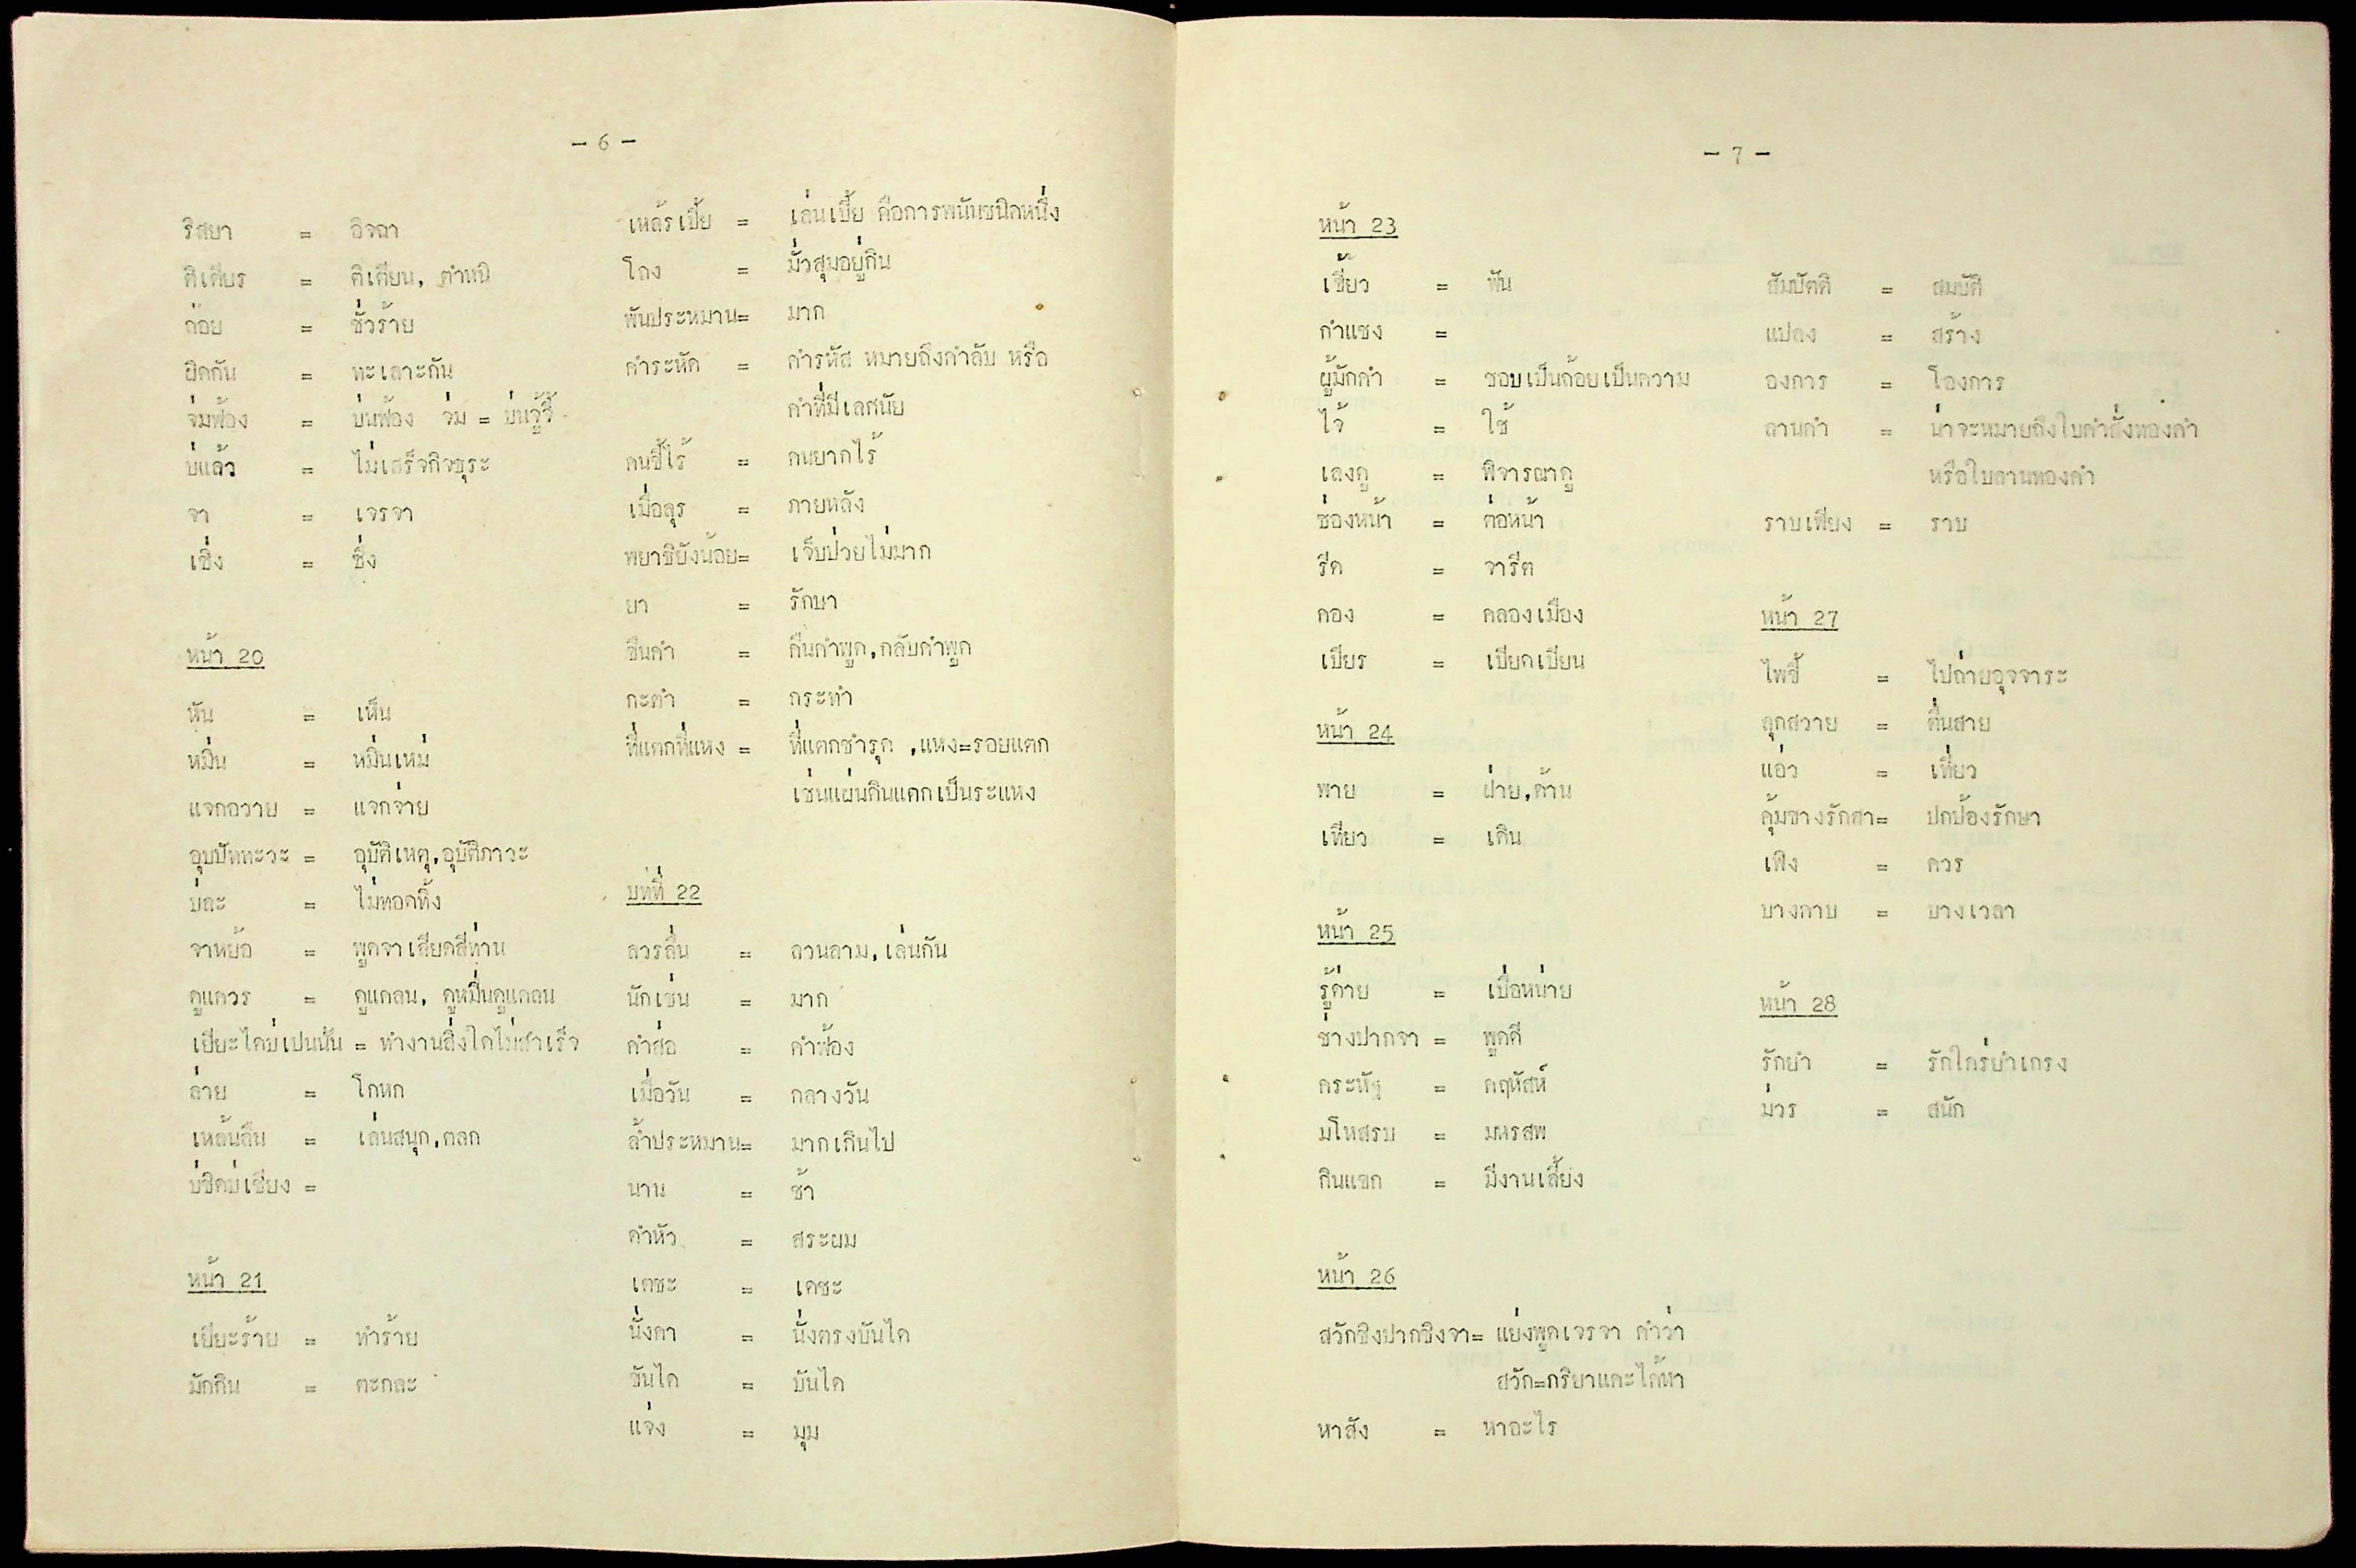 - 6 -
ริสยา = อิจฉา
ติเตียร = ติเตียน, ตำหนิ
ถ่อย = ชั่วร้าย
ผิดกัน = ทะเลาะกัน
จ่มฟ้อง = บ่นฟ้อง จ่ม = บ่นจู้จี้
บ่แล้ว = ไม่เสร็จกิจธุระ
จา = เจรจา
เซิ่ง = ซึ่ง
หน้า 20
หัน = เห็น
หมิ่น = หมิ่นเหม่
แจกถวาย = แจกจ่าย
อุบปัททะวะ = อุบัติเหตุ,อุบัติภาวะ
บ่ละ = ไม่ทอดทิ้ง
จาหย้อ = พูดจาเสียดสีท่าน
ดูแควร = ดูแคลน, ดูหมิ่นดูแคลน
เยียะใดบ่เปนนั้น = ทำงานสิ่งใดไม่สำเร็จ
ล่าย = โกหก
เหล้นลืน = เล่นสนุก,ตลก
บ่ชิดบ่เชียง =
หน้า 21
เยียะร้าย = ทำร้าย
มักกิน = ตะกละ
เหล้รเบี้ย = เล่นเบี้ย คือการพนันชนิดหนึ่ง
โกง = มั่วสุมอยู่กิน
พันประหมาน= มาก
คำระหัด = คำรหัส หมายถึงคำลับ หรือ
คำที่มีเลศนัย
คนขี้ไร้ = คนยากไร้
เมื่อลุร = ภายหลัง
พยาธิยังน้อย= เจ็บป่วยไม่มาก
ยา = รักษา
ขืนคำ = คืนคำพูด,กลับคำพูด
กะตำ = กระทำ
ที่แตกที่แหง = ที่แตกชำรุด ,แหง=รอยแตก
เช่นแผ่นดินแตกเป็นระแหง
บทที่ 22
ลวรลื่น = ลวนลาม,เล่นกัน
นักเช่น = มาก
คำส่อ = คำฟ้อง
เมื่อวัน = กลางวัน
ล้ำประหมาน= มากเกินไป
นาน = ช้า
ดำหัว = สระผม
เตชะ = เดชะ
นั่งคา = นั่งตรงบันได
ขันได = บันได
แจ่ง = มุม
- 7 -
หน้า 23
เขี้ยว = ฟัน
กำแชง =
ผู้มักคำ = ชอบเป็นถ้อยเป็นความ
ไจ้ = ใช้
เลงดู = พิจารณาดู
ช่องหน้า = ต่อหน้า
รีด = จารีต
คอง = คลองเมือง
เบียร = เบียดเบียน
หน้า 24
พาย = ฝ่าย,ด้าน
เทียว = เดิน
หน้า 25
รู้ค่าย = เบื่อหน่าย
ช่างปากจา = พูดดี
คฤหัสห์
มโหสรบ = มหรสพ
กินแขก = มีงานเลี้ยง
หน้า 26
สวักชิงปากชิงจา= แย่งพูดเจรจา คำว่า
สวัก=กริยาแคะไค้หา
หาสัง = หาอะไร
สัมปัตติ = สมบัติ
แปลง = สร้าง
องการ = โองการ
ลานคำ = น่าจะหมายถึงใบคำสั่งทองคำ
หรือใบลานทองคำ
ราบเพียง = ราบ
หน้า 27
ไพขี้ = ไปถ่ายอุจจาระ
ลุกสวาย = ตื่นสาย
แอ่ว = เที่ยว
คุ้มขางรักสา= ปกป้องรักษา
เพิง = ควร
บางคาบ = บางเวลา
หน้า 28
รักยำ = รักใคร่ยำเกรง
ม่วร = สนัก